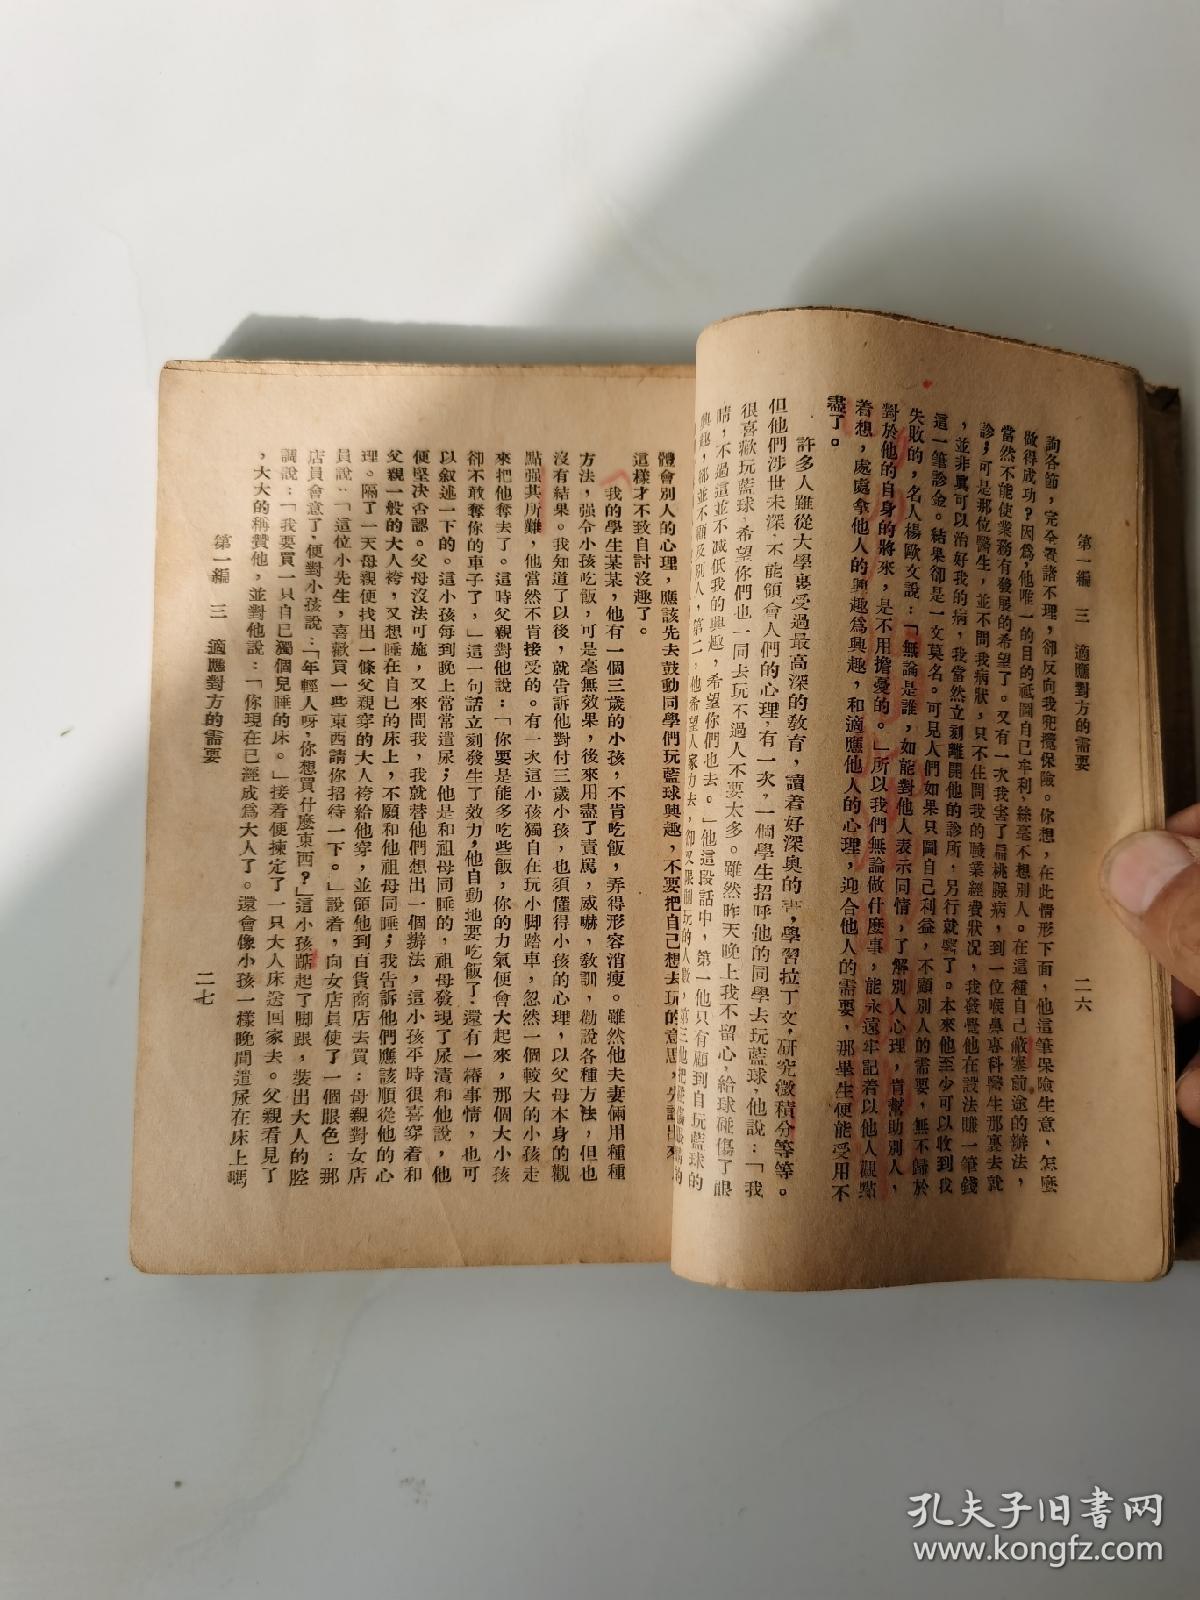 第一編　三　適應對方的需要　二六
詢各節，完全置諸不理，卻反向我兜攬保險。你想，在此情形下面，他這筆保險生意，怎麼
做得成功？因爲，他唯一的目的祗圖自己牟利，絲毫不想別人。在這種自己蔽塞前途的辦法，
當然不能使業務有發展的希望了。又有一次我害了扁桃腺病，到一位喉鼻專科醫生那裏去就
診；可是那位醫生，並不問我病狀，只不住問我的職業經費狀況，我發覺他在設法賺一筆錢
，並非眞可以治好我的病，我當然立刻離開他的診所，另行就醫了。本來他至少可以收到我
這一筆診金。結果卻是一文莫名。可見人們如果只圖自己利益，不顧別人的需要，無不歸於
失敗的，名人楊歐文說：「無論是誰，如能對他人表示同情，了解別人心理，肯幫助別人，
對於他的自身的將來，是不用擔憂的。」所以我們無論做什麼事，能永遠牢記着以他人觀點
着想，處處拿他人的興趣爲興趣，和適應他人的心理，迎合他人的需要，那畢生便能受用不
盡了。
許多人雖從大學裏受過最高深的敎育，讀着好深奧的書，學習拉丁文，研究微積分等等。
但他們涉世未深，不能領會人們的心理，有一次，一個學生招呼他的同學去玩藍球，他說：「我
很喜歡玩藍球，希望你們也一同去玩不過人不要太多。雖然昨天晚上我不留心，給球碰傷了眼
睛，不過這並不减低我的興趣，希望你們也去。」他這段話中，第一他只有顧到自玩藍球的
興趣，卻並不顧及別人，第二，他希望人家力去，卻又限制玩的人數，第三他把
體會別人的心理，應該先去鼓動同學們玩藍球興趣，不要把自己想去玩的意思，先說出來
這樣才不致自討沒趣了。
我的學生某某，他有一個三歲的小孩，不肯吃飯，弄得形容消瘦。雖然他夫妻倆用種種
方法，强令小孩吃飯，可是毫無效果，後來用盡了責罵，威嚇，敎訓，勸說各種方法，但也
沒有結果。我知道了以後，就告訴他對付三歲小孩，也須懂得小孩的心理，以父母本身的觀
點强其所難，他當然不肯接受的。有一次這小孩獨自在玩小脚踏車，忽然一個較大的小孩走
來把他奪去了。這時父親對他說：「你要是能多吃些飯，你的力氣便會大起來，那個大小孩
卻不敢奪你的車子了，」這一句話立刻發生了效力，他自動地要吃飯了，還有一樁事情，也可
以叙述一下的。這小孩每到晚上常常遺尿；他是和祖母同睡的，祖母發現了尿漬和他說，他
便堅決否認。父母沒法可施，又來問我，我就替他們想出一個辦法，這小孩平時很喜穿着和
父親一般的大人袴，又想睡在自已的床上，不願和他祖母同睡；我告訴他們應該順從他的心
理。隔了一天母親便找出一條父親穿的大人袴給他穿，並領他到百貨商店去買：母親對女店
員說：「這位小先生，喜歡買一些東西請你招待一下。」說着，向女店員使了一個眼色：那
店員會意了，便對小孩說：「年輕人呀，你想買什麼東西？」這小孩踮起了脚跟，裝出大人的腔
調說：「我要買一只自已獨個兒睡的床。」接着便揀定了一只大人床送回家去。父親看見了
，大大的稱贊他，並對他說：「你現在已經成爲大人了。還會像小孩一樣晚間遺尿在床上嗎
第一編　三　適應對方的需要　二七
孔夫子旧书网
www.kongfz.com